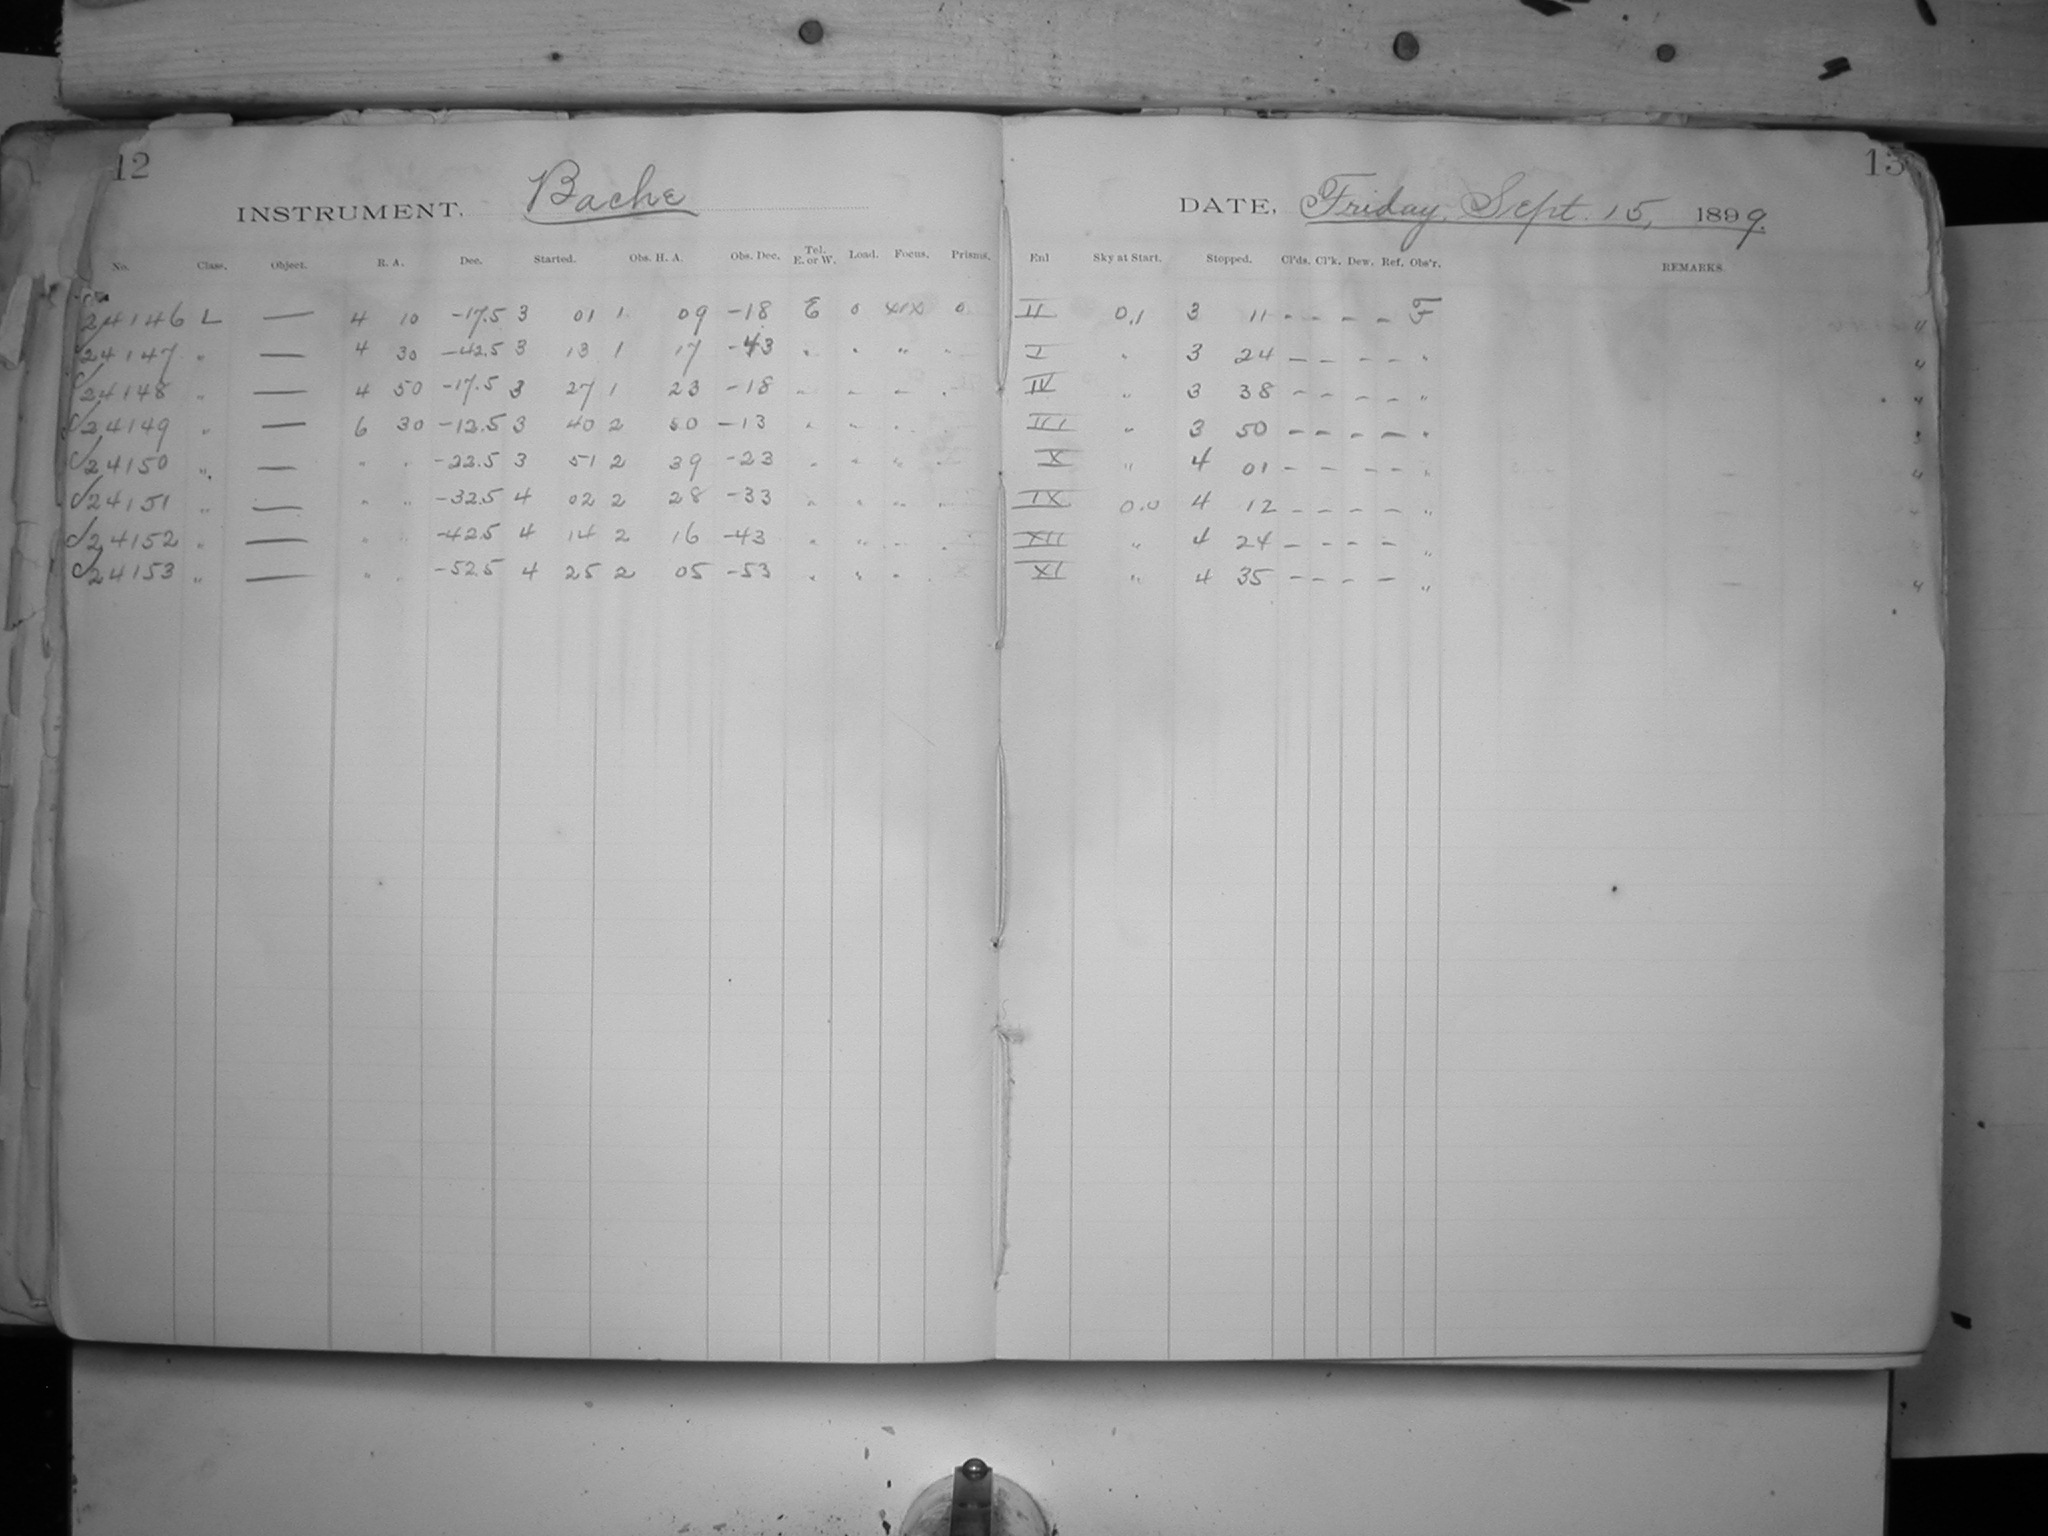 12
INSTRUMENT. Bache
No. Class. Object. R. A. Dec. Started. Obs. H. A. Obs. Dec. Tel. E. or W. Load. Focus. Prisms.
24146 L — 4 10 -17.5 3 01 1 09 -18 E 0 XIX 0
24147 " — 4 30 -42.5 3 13 1 17 -43 " " " "
24148 " — 4 50 -17.5 3 27 1 23 -18 " " " "
24149 " — 6 30 -12.5 3 40 2 50 -13 " " " "
24150 " — " " -22.5 3 51 2 39 -23 " " " "
24151 " — " " -32.5 4 02 2 28 -33 " " " "
24152 " — " " -42.5 4 14 2 16 -43 " " " "
24153 " — " " -52.5 4 25 2 05 -53 " " " "
13
DATE, Friday, Sept. 15, 1899.
Enl Sky at Start. Stopped. Cl'ds. Cl'k. Dew. Ref. Obs'r. REMARKS.
II 0.1 3 11 - - - - F "
I " 3 24 - - - - " "
IV " 3 38 - - - - " "
III " 3 50 - - - - " "
X " 4 01 - - - - " "
IX 0.0 4 12 - - - - " "
XII " 4 24 - - - - " "
XI " 4 35 - - - - " "